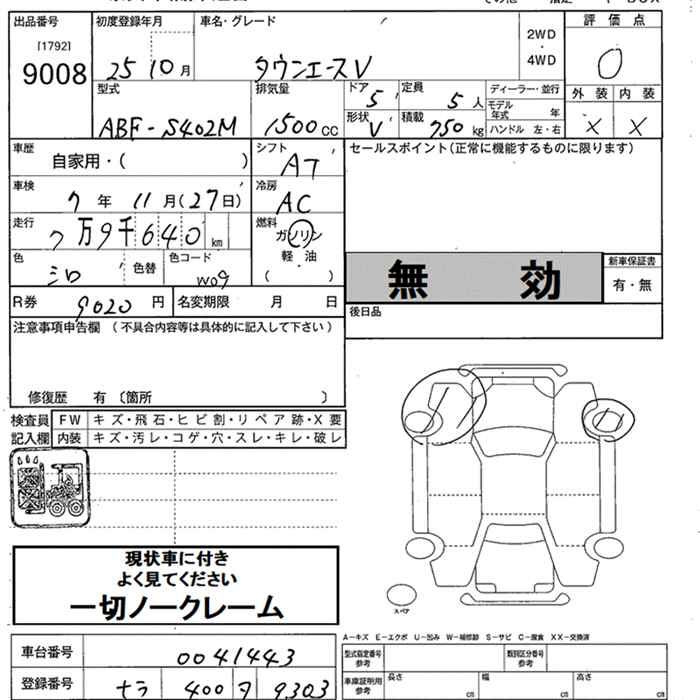 出品番号 初度登録年月 車名・グレード 評価点
[1792]
9008 25 10 月 タウンエースV 2WD ・ 4WD 0
型式 排気量 ドア 5 定員 5 人 ディーラー・並行 外装 内装
ABF-S402M 1500 cc 形状 V 積載 750 kg モデル年式 年 ハンドル 左・右 X X
車歴 自家用・( ) シフト AT セールスポイント(正常に機能するものに限ります)
車検 7 年 11 月 (27日) 冷房 AC
走行 7 万 9 千 6 4 0 km 燃料 ガソリン 軽油 ( )
色 シロ 色替 色コード W09
無効 新車保証書 有・無
R券 9020 円 名変期限 月 日 後日品
注意事項申告欄 (不具合内容等は具体的に記入して下さい)
修復歴 有 〔箇所 〕
検査員 FW キズ・飛石・ヒビ割・リペア跡・X要
記入欄 内装 キズ・汚レ・コゲ・穴・スレ・キレ・破レ
現状車に付き
よく見てください
一切ノークレーム
スペア
A-キズ E-エクボ U-凹み W-補修跡 S-サビ C-腐食 XX-交換済
車台番号 0041443 型式指定番号 参考 類別区分番号 参考
登録番号 ナラ 400 タ 9303 車庫証明用 参考 長さ cm 幅 cm 高さ cm